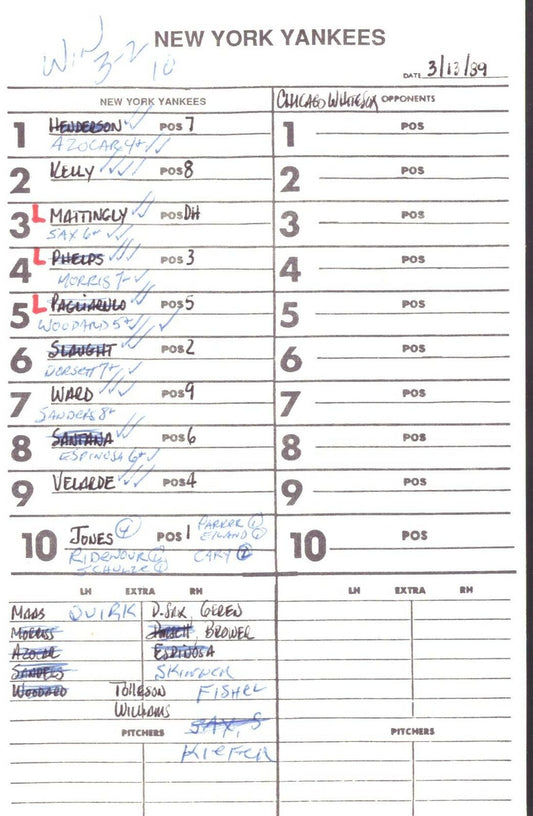 Win
3-2
10
NEW YORK YANKEES
DATE 3/13/89
NEW YORK YANKEES
CHICAGO WHITESOX OPPONENTS
1 HENDERSON POS 7
AZOCAR 4+
2 KELLY POS 8
3 L MATTINGLY POS DH
SAX 6+
4 L PHELPS POS 3
MORRIS 7+
5 L PAGLIARULO POS 5
WOODARD 5+
6 SLAUGHT POS 2
DORSETT 7+
7 WARD POS 9
SANDERS 8+
8 SANTANA POS 6
ESPINOSA 6+
9 VELARDE POS 4
10 JONES POS 1
RIDENOUR
SCHULZE
PARKER
EILAND
CARY
1 POS
2 POS
3 POS
4 POS
5 POS
6 POS
7 POS
8 POS
9 POS
10 POS
LH EXTRA RH
MAAS QUIRK D. SAX, GEREN
MORRIS DORSETT, BROWER
AZOCAR ESPINOSA
SANDERS SKINNER
WOODARD TOLLESON FISHEL
WILLIAMS
PITCHERS SAX, S
KIEFER
LH EXTRA RH
PITCHERS